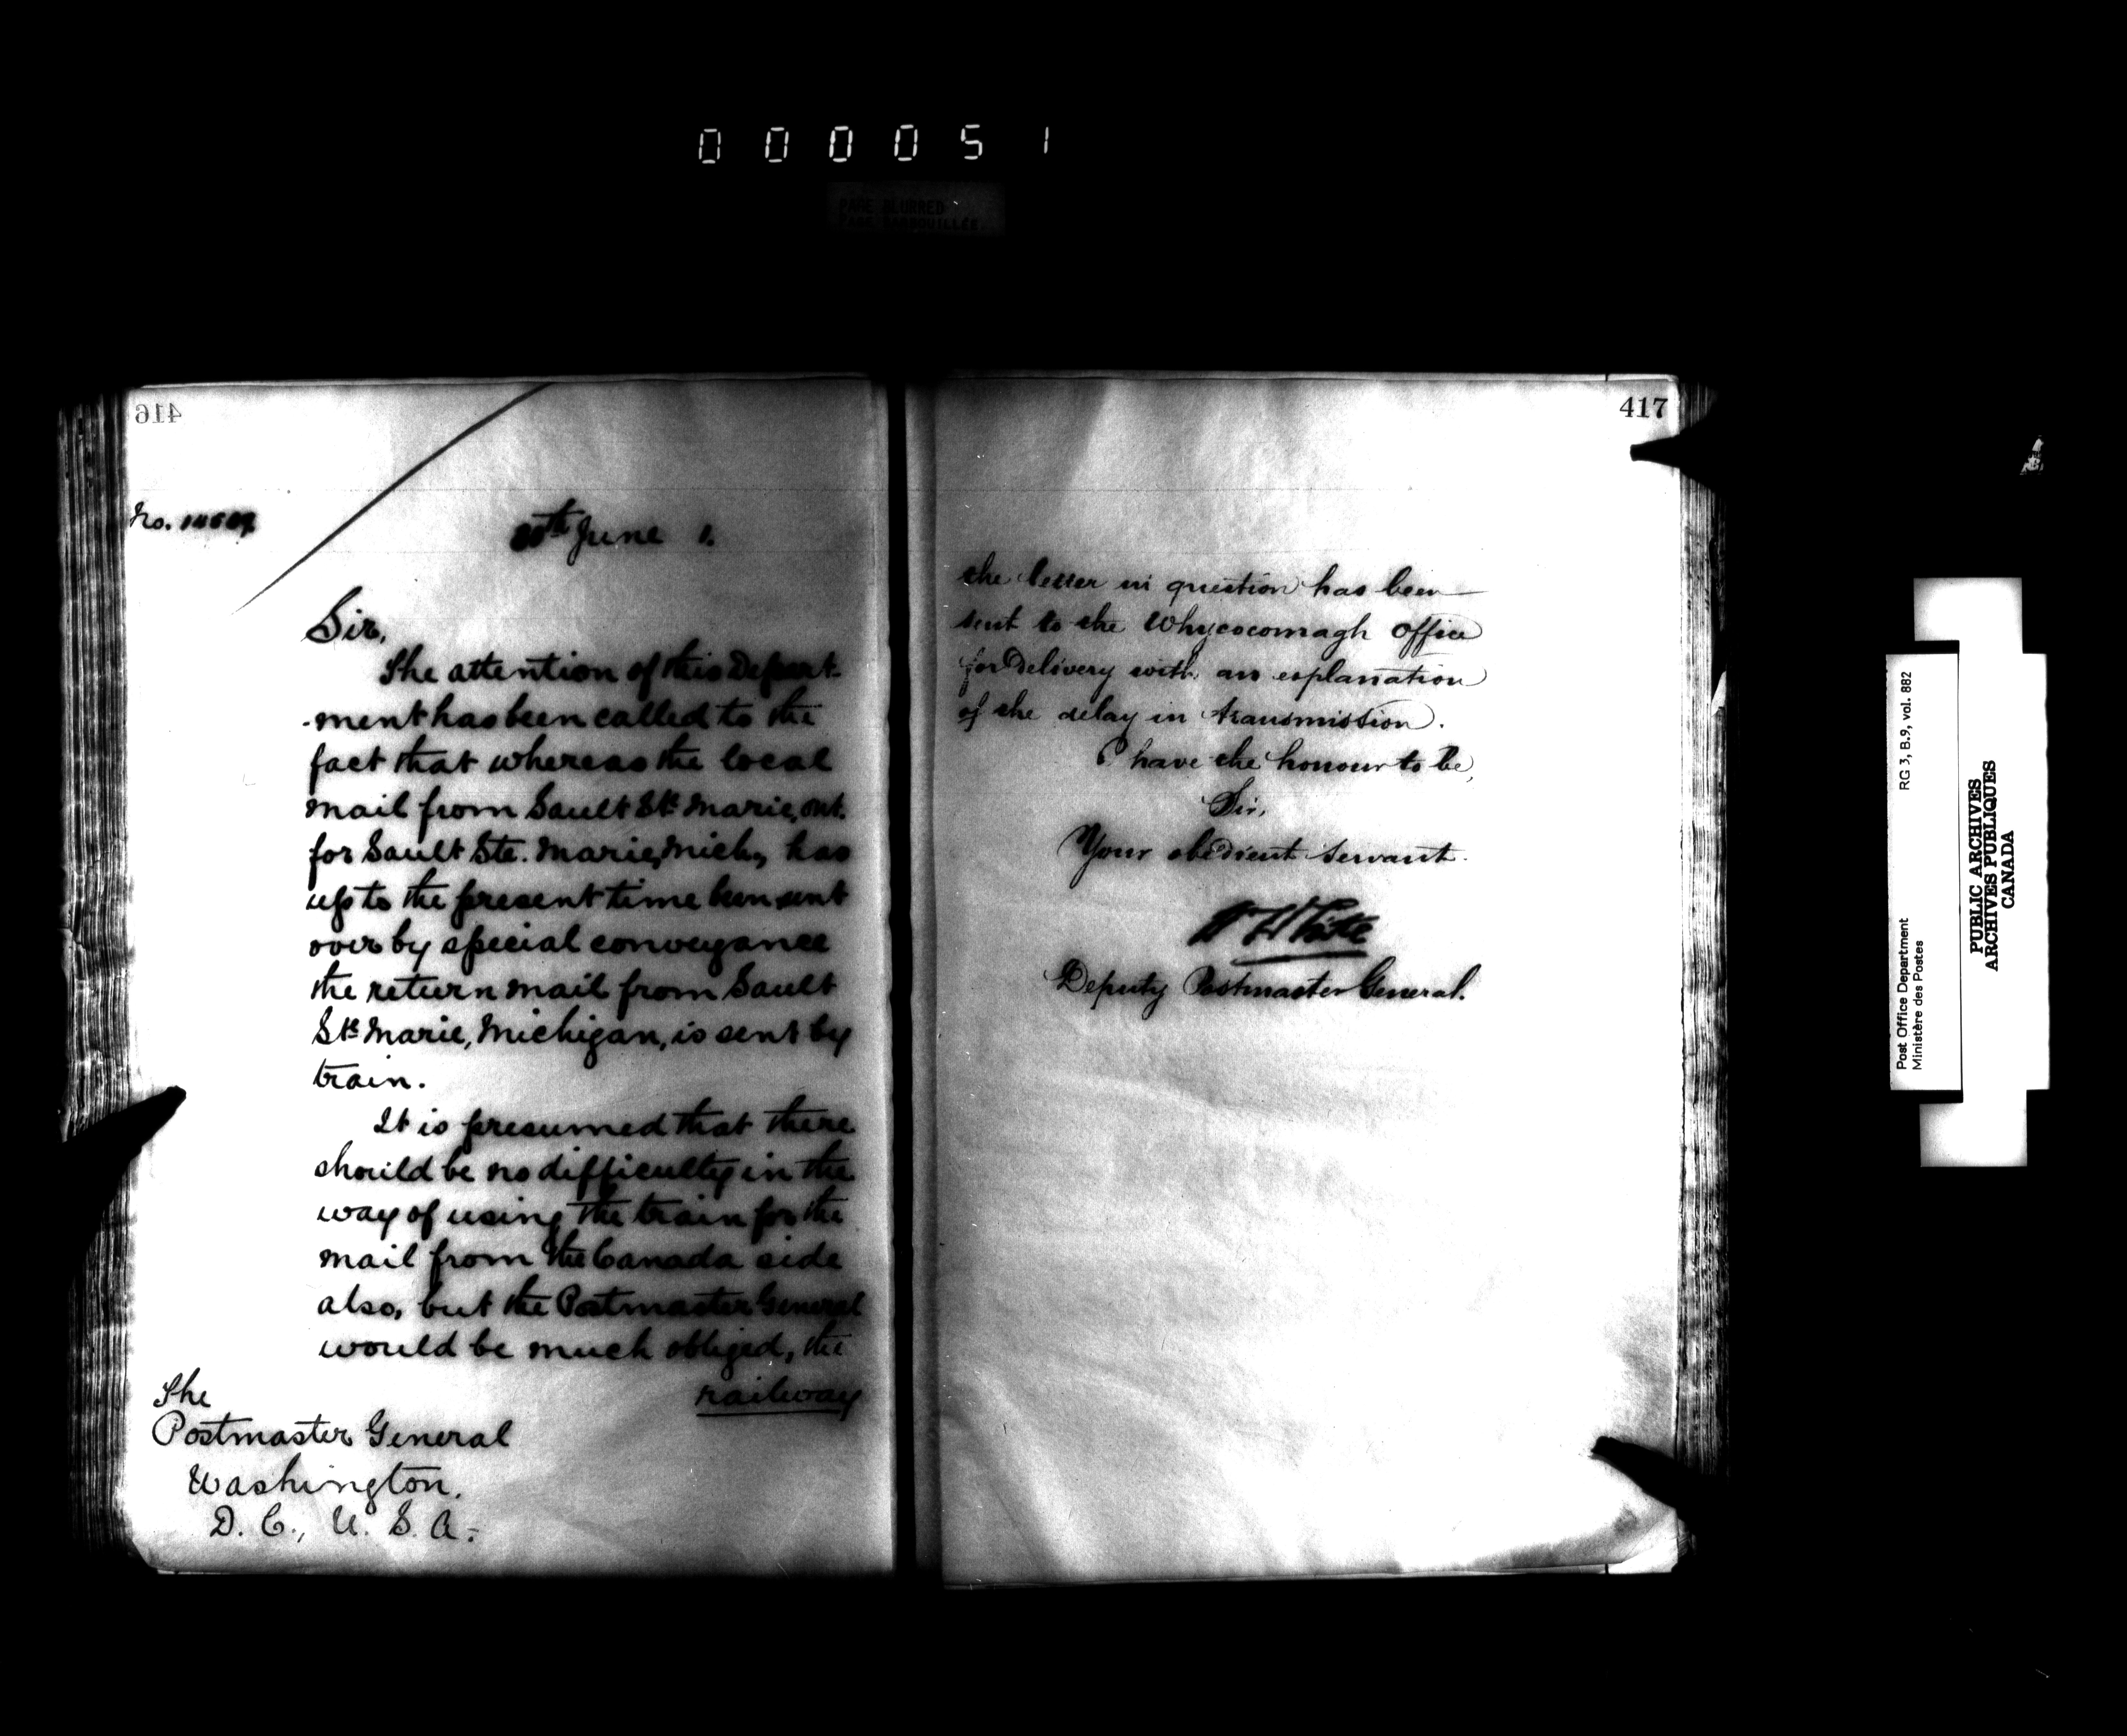 000051
PAGE BLURRED
PAGE BARBOUILLÉE
416
No.
June 1.
Sir,
The attention of this Depart-
-ment has been called to the
fact that whereas the local
mail from Sault Ste Marie, Ont.
for Sault Ste. Marie, Mich., has
up to the present time been sent
over by special conveyance
the return mail from Sault
Ste Marie, Michigan, is sent by
train.
It is presumed that there
should be no difficulty in the
way of using the train for the
mail from the Canada side
also, but the Postmaster General
would be much obliged, the
railway
The
Postmaster General
Washington.
D. C., U. S. A.
417
the letter in question has been
sent to the Whycocomagh Office
for delivery with an explanation
of the delay in transmission.
I have the honour to be,
Sir,
Your obedient servant.
W H White
Deputy Postmaster General.
Post Office Department
Ministère des Postes
RG 3, B.9, vol. 882
PUBLIC ARCHIVES
ARCHIVES PUBLIQUES
CANADA